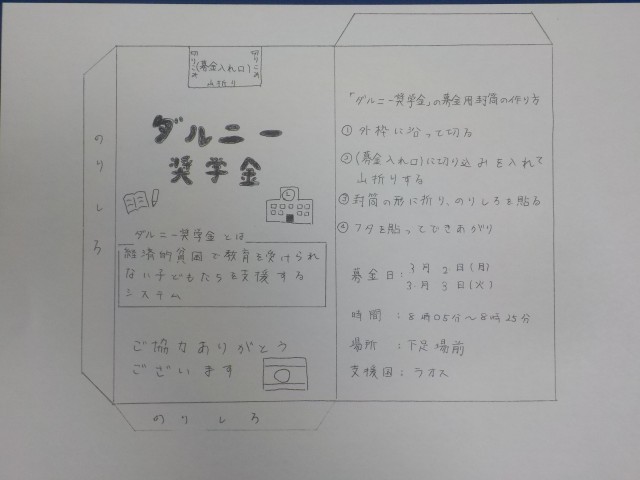 切りこみ
(募金入れ口)
切りこみ
山折り
ダルニー
奨学金
ダルニー奨学金とは
経済的貧困で教育を受けられ
ない子どもたちを支援する
システム
ご協力ありがとう
ございます
のりしろ
のりしろ
「ダルニー奨学金」の募金用封筒の作り方
①外枠に沿って切る
②(募金入れ口)に切り込みを入れて
山折りする
③封筒の形に折り、のりしろを貼る
④フタを貼ってできあがり
募金日:3月2日(月)
3月3日(火)
時間:8時05分~8時25分
場所:下足場前
支援国:ラオス